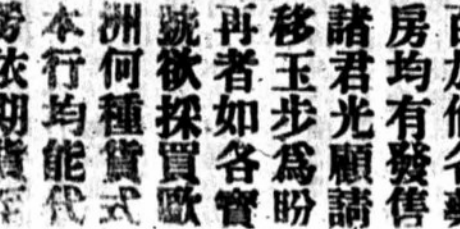 房均有發售
諸君光顧請
移玉步為盼
再者如各寶
號欲採買歐
洲何種貨式
本行均能代
依期貨